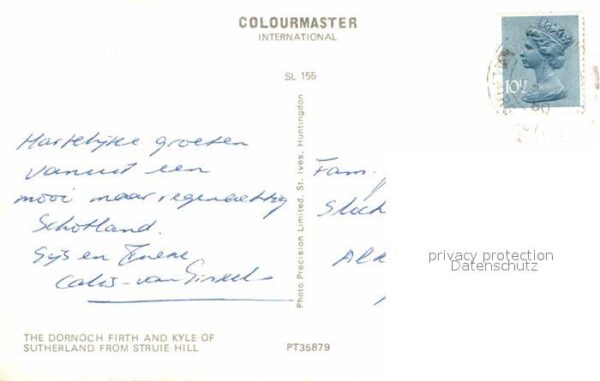 COLOURMASTER
INTERNATIONAL
SL 155
10P
Hartelijke groeten
vanuit een
mooi maar regenachtig
Schotland.
Gijs en
Photo Precision Limited, St. Ives, Huntingdon
Fam.
privacy protection
Datenschutz
THE DORNOCH FIRTH AND KYLE OF
SUTHERLAND FROM STRUIE HILL
PT35879